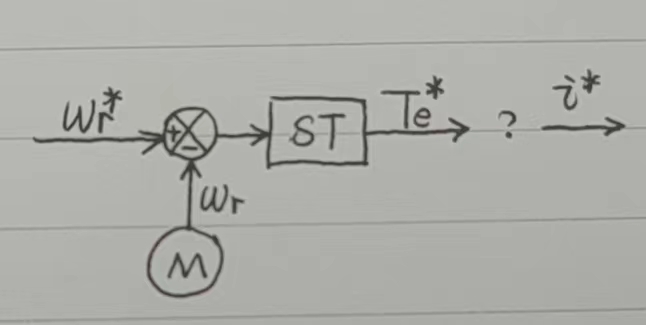 ωr* + − ST Te* ? i*
ωr
M